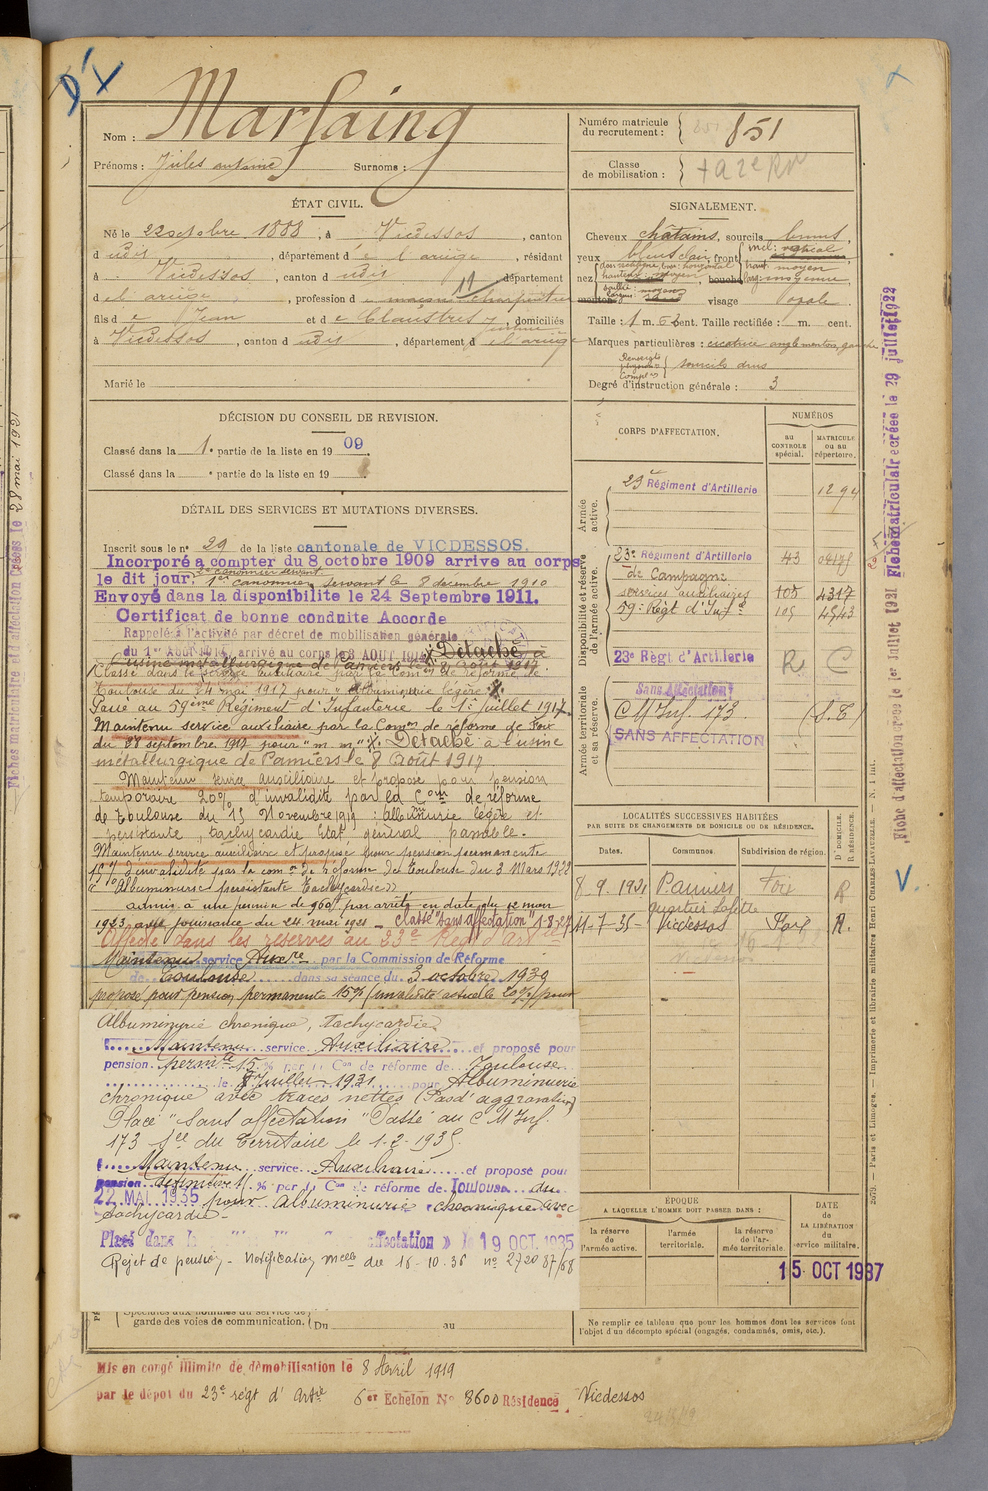 D'X
Nom : Marfaing
Prénoms : Jules antoine Surnoms :
Numéro matricule
du recrutement : 851
Classe
de mobilisation :
ÉTAT CIVIL.
Né le 22 octobre 1888, à Vicdessos, canton
d udit, département d e l'ariège, résidant
à Vicdessos, canton d udit département
d el'ariège, profession d e charpentier
fils d e Jean et d e Claustres, domiciliés
à Vicdessos, canton d udit, département d e l'ariège
Marié le
SIGNALEMENT.
Cheveux châtains, sourcils bruns,
yeux bleus clair front
nez bouche moyenne,
menton visage ovale
Taille : 1 m. 62 cent. Taille rectifiée : m. cent.
Marques particulières : cicatrice angle menton gauche
sourcils drus
Degré d'instruction générale : 3
DÉCISION DU CONSEIL DE REVISION.
Classé dans la 1e partie de la liste en 1909.
Classé dans la e partie de la liste en 19 .
DÉTAIL DES SERVICES ET MUTATIONS DIVERSES.
Inscrit sous le n° 29 de la liste cantonale de VICDESSOS.
Incorporé a compter du 8 octobre 1909 arrive au corps
le dit jour. 2e canonnier servant
1er canonnier servant le 8 décembre 1910
Envoyé dans la disponibilite le 24 Septembre 1911.
Certificat de bonne conduite Accorde
Rappelé à l'activité par décret de mobilisation générale
du 1er AOUT 1914, arrivé au corps le 3 AOUT 1914 Détaché à
l'usine métallurgique de Pamiers le 8 août 1917.
Classé dans le service auxiliaire par la Comon de réforme de
Toulouse du 24 mai 1917 pour "albuminurie légère".
Passé au 59ème Régiment d'Infanterie le 1er juillet 1917.
Maintenu service auxiliaire par la Comon de réforme de Foix
du 28 septembre 1917 pour "m. m". Détaché à l'usine
métallurgique de Pamiers le 8 août 1917.
Maintenu service auxiliaire et proposé pour pension
temporaire 20% d'invalidité par la Com on de réforme
de Toulouse du 15 Novembre 1919 : albuminurie légère et
persistante, tachycardie Etat général passable.
Maintenu service auxiliaire et proposé pour pension permanente
15% d'invalidité par la com on de réforme de Toulouse du 3 Mars 1922
"Albuminurie persistante Tachycardie"
admis à une pension de 360f par arrêté en date du 12 mars
1923 avec jouissance du 24 mai 1921 - Classé "sans affectation" 1-8-27
Affecté dans les réserves au 23e Régt d'Artie
Maintenu service Auxre par la Commission de Réforme
de Toulouse dans sa séance du 3 octobre 1930
proposé pour pension permanente 15% (invalidité actuelle 20%) pour
Albuminurie chronique, tachycardie
Maintenu service Auxiliaire et proposé pour
pension permte 15 % par la Con de réforme de Toulouse
le Juillet 1931 pour Albuminurie
chronique avec traces nettes (Pas d'aggravation)
Placé "Sans affectation" Passé au C M Inf.
173 Son du Territoire le 1-2-1935
Maintenu service Auxiliaire et proposé pour
pension définitive % par la Con de réforme de Toulouse du
22 MAI 1935 pour Albuminurie chronique avec
tachycardie -
Placé dans la affectation » 19 OCT. 1935
Rejet de pension - Notification mlle du 18-10-36 n° 272087/68
Spécialités aux hommes du service de
garde des voies de communication. Du au
CORPS D'AFFECTATION.
NUMÉROS
au
CONTROLE
spécial.
MATRICULE
ou au
répertoire.
Armée
active.
23e Régiment d'Artillerie 1294
Disponibilité et réserve
de l'armée active.
23e Régiment d'Artillerie 43
de Campagne
services auxiliaires 105 4317
59e Régt d'Infie 105 4543
23e Régt d'Artillerie R C
Armée territoriale
et sa réserve.
Sans Affectation
C M Inf. 173 (S.T)
SANS AFFECTATION
LOCALITÉS SUCCESSIVES HABITÉES
PAR SUITE DE CHANGEMENTS DE DOMICILE OU DE RÉSIDENCE.
Dates. Communes. Subdivision de région. D DOMICILE. R RÉSIDENCE.
8.9.1921 Pamiers Foix R
quartier Lafitte
11-7-35- Vicdessos Foix R.
ÉPOQUE
A LAQUELLE L'HOMME DOIT PASSER DANS :
la réserve
de
l'armée active.
l'armée
territoriale.
la réserve
de l'ar-
mée territoriale.
DATE
de
LA LIBÉRATION
du
service militaire.
15 OCT 1937
Ne remplir ce tableau que pour les hommes dont les services font
l'objet d'un décompte spécial (engagés, condamnés, omis, etc.).
Mis en congé illimité de démobilisation le 8 Avril 1919
par le dépôt du 23e régt d'Artie 6er Echelon N° 8600 Résidence Vicdessos
Fiche d'affectation créée le 1er Juillet 1921 Fiche matriculaire créée le 29 juillet 1922
2079. — Paris et Limoges. — Imprimerie et librairie militaires Henri CHARLES-LAVAUZELLE. — N. 1 int.
V.
28 mai 1921